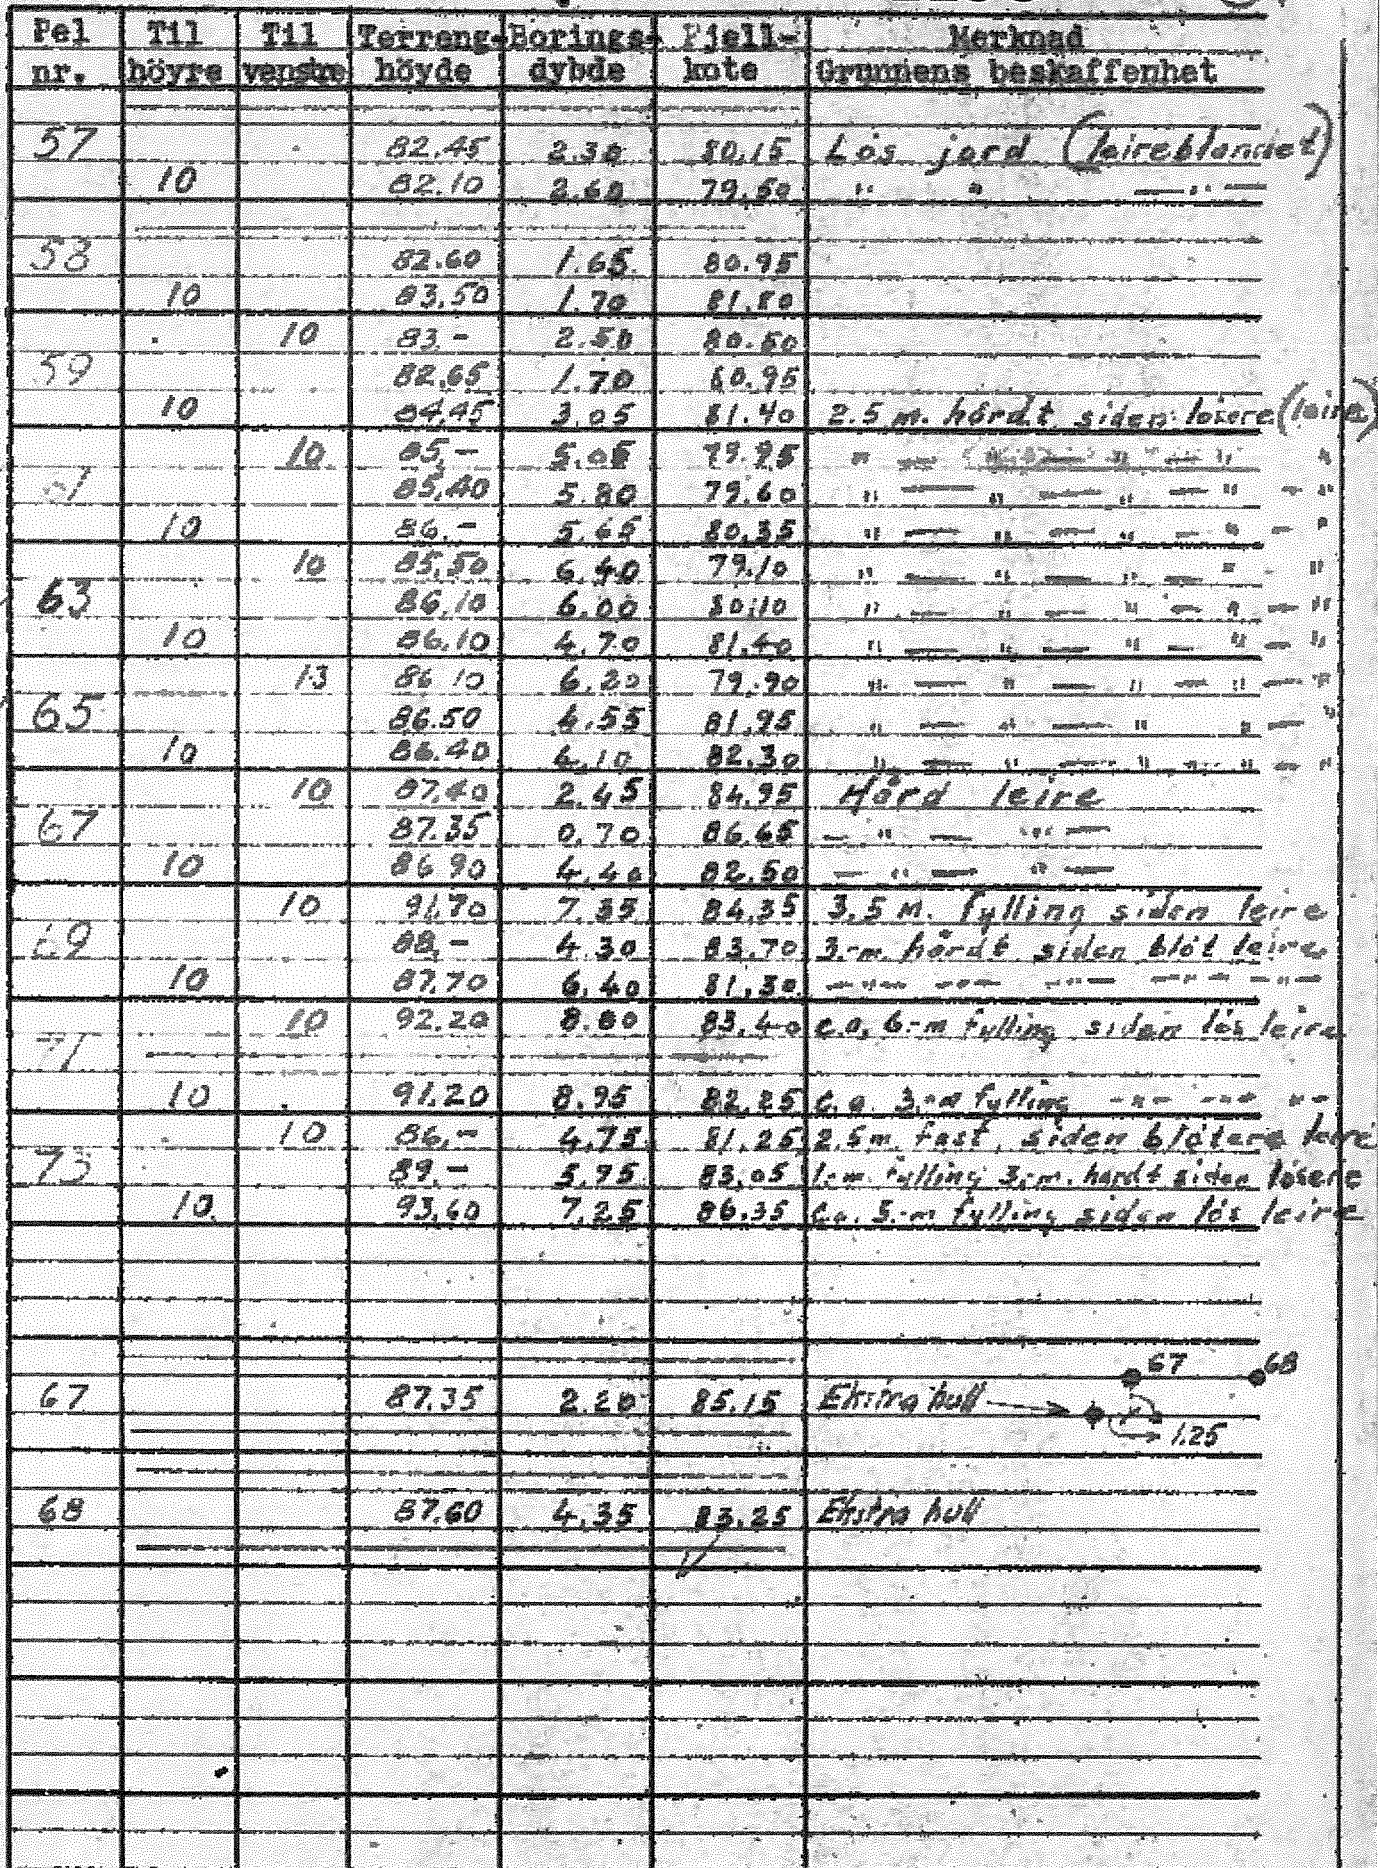 Pel Til Til Terreng- Borings- Fjell- Merknad
nr. höyre venstre höyde dybde kote Grunnens beskaffenhet
57 82.45 2.30 80,15 Lös jord (leireblandet)
10 82.10 2.60 79,50 " " — " —
58 82.60 1.65 80.95
10 83,50 1.70 81.80
10 83.- 2.50 80.50
59 82.65 1.70 80.95
10 84.45 3,05 81.40 2.5 m. hårdt siden lösere (leire)
10 85,- 5.05 79.95 " — — " — " "
61 85,40 5.80 79.60 " — " — " — " — "
10 86.- 5.65 80,35 " — " — " — " — "
10 85,50 6,40 79.10 " — " — " — " "
63 86,10 6.00 80,10 " — " — " — " — "
10 86,10 4,70 81,40 " — " — " — " — "
13 86 10 6,20 79.90 " — " — " — " — "
65 86.50 4.55 81,95 " — " — " " — "
10 86.40 4,10 82,30 " — " — " — " — "
10 87.40 2.45 84,95 Hård leire
67 87.35 0,70 86.65 — " — " —
10 86 90 4,40 82.50 — " — " —
10 91,70 7.35 84,35 3,5 m. fylling siden leire
69 88,- 4.30 83.70 3.-m. hårdt siden blöt leire
10 87.70 6,40 81,30 -"- -"- -"- -"- -"-
10 92.20 8.80 83,40 c.a. 6.-m fylling siden lös leire
71
10 91.20 8.95 82,25 c.a. 3.-m fylling -"- -"- "-
10 86,- 4,75 81,25 2.5 m. fast, siden blötere leire
73 89.- 5.95 83,05 1.-m. fylling 3.-m. hårdt siden lösere
10 93,60 7,25 86.35 Ca. 5.-m fylling siden lös leire
67 68
67 87.35 2.20 85.15 Ekstra hull
1.25
68 87.60 4.35 83.25 Ekstra hull